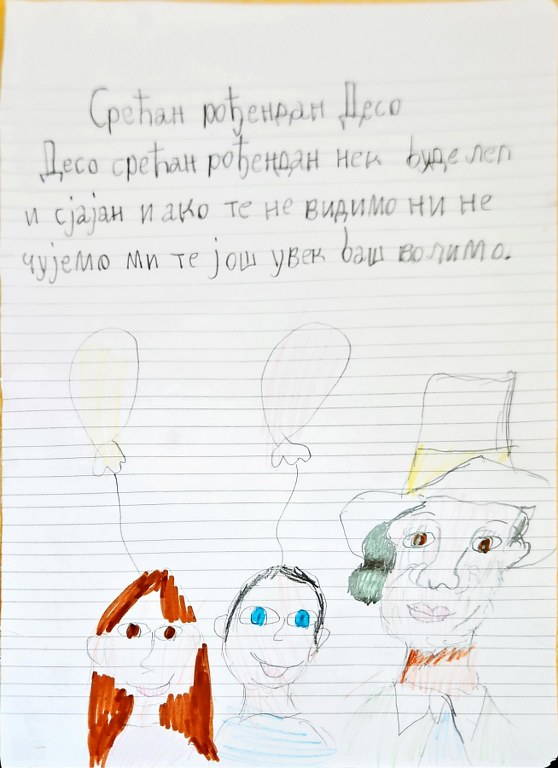 Срећан рођендан Десо
Десо срећан рођендан нек буде леп
и сјајан и ако те не видимо ни не
чујемо ми те још увек баш волимо.